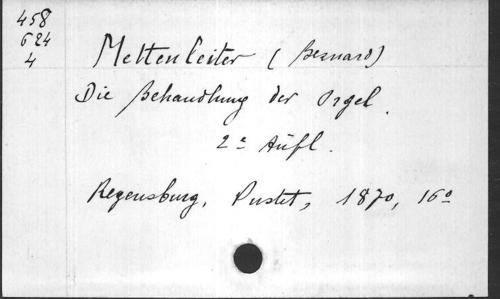 458
624
4
Mettenleiter (Bernard)
Die Behandlung der Orgel.
2e Aufl.
Regensburg, Pustet, 1870, 16o